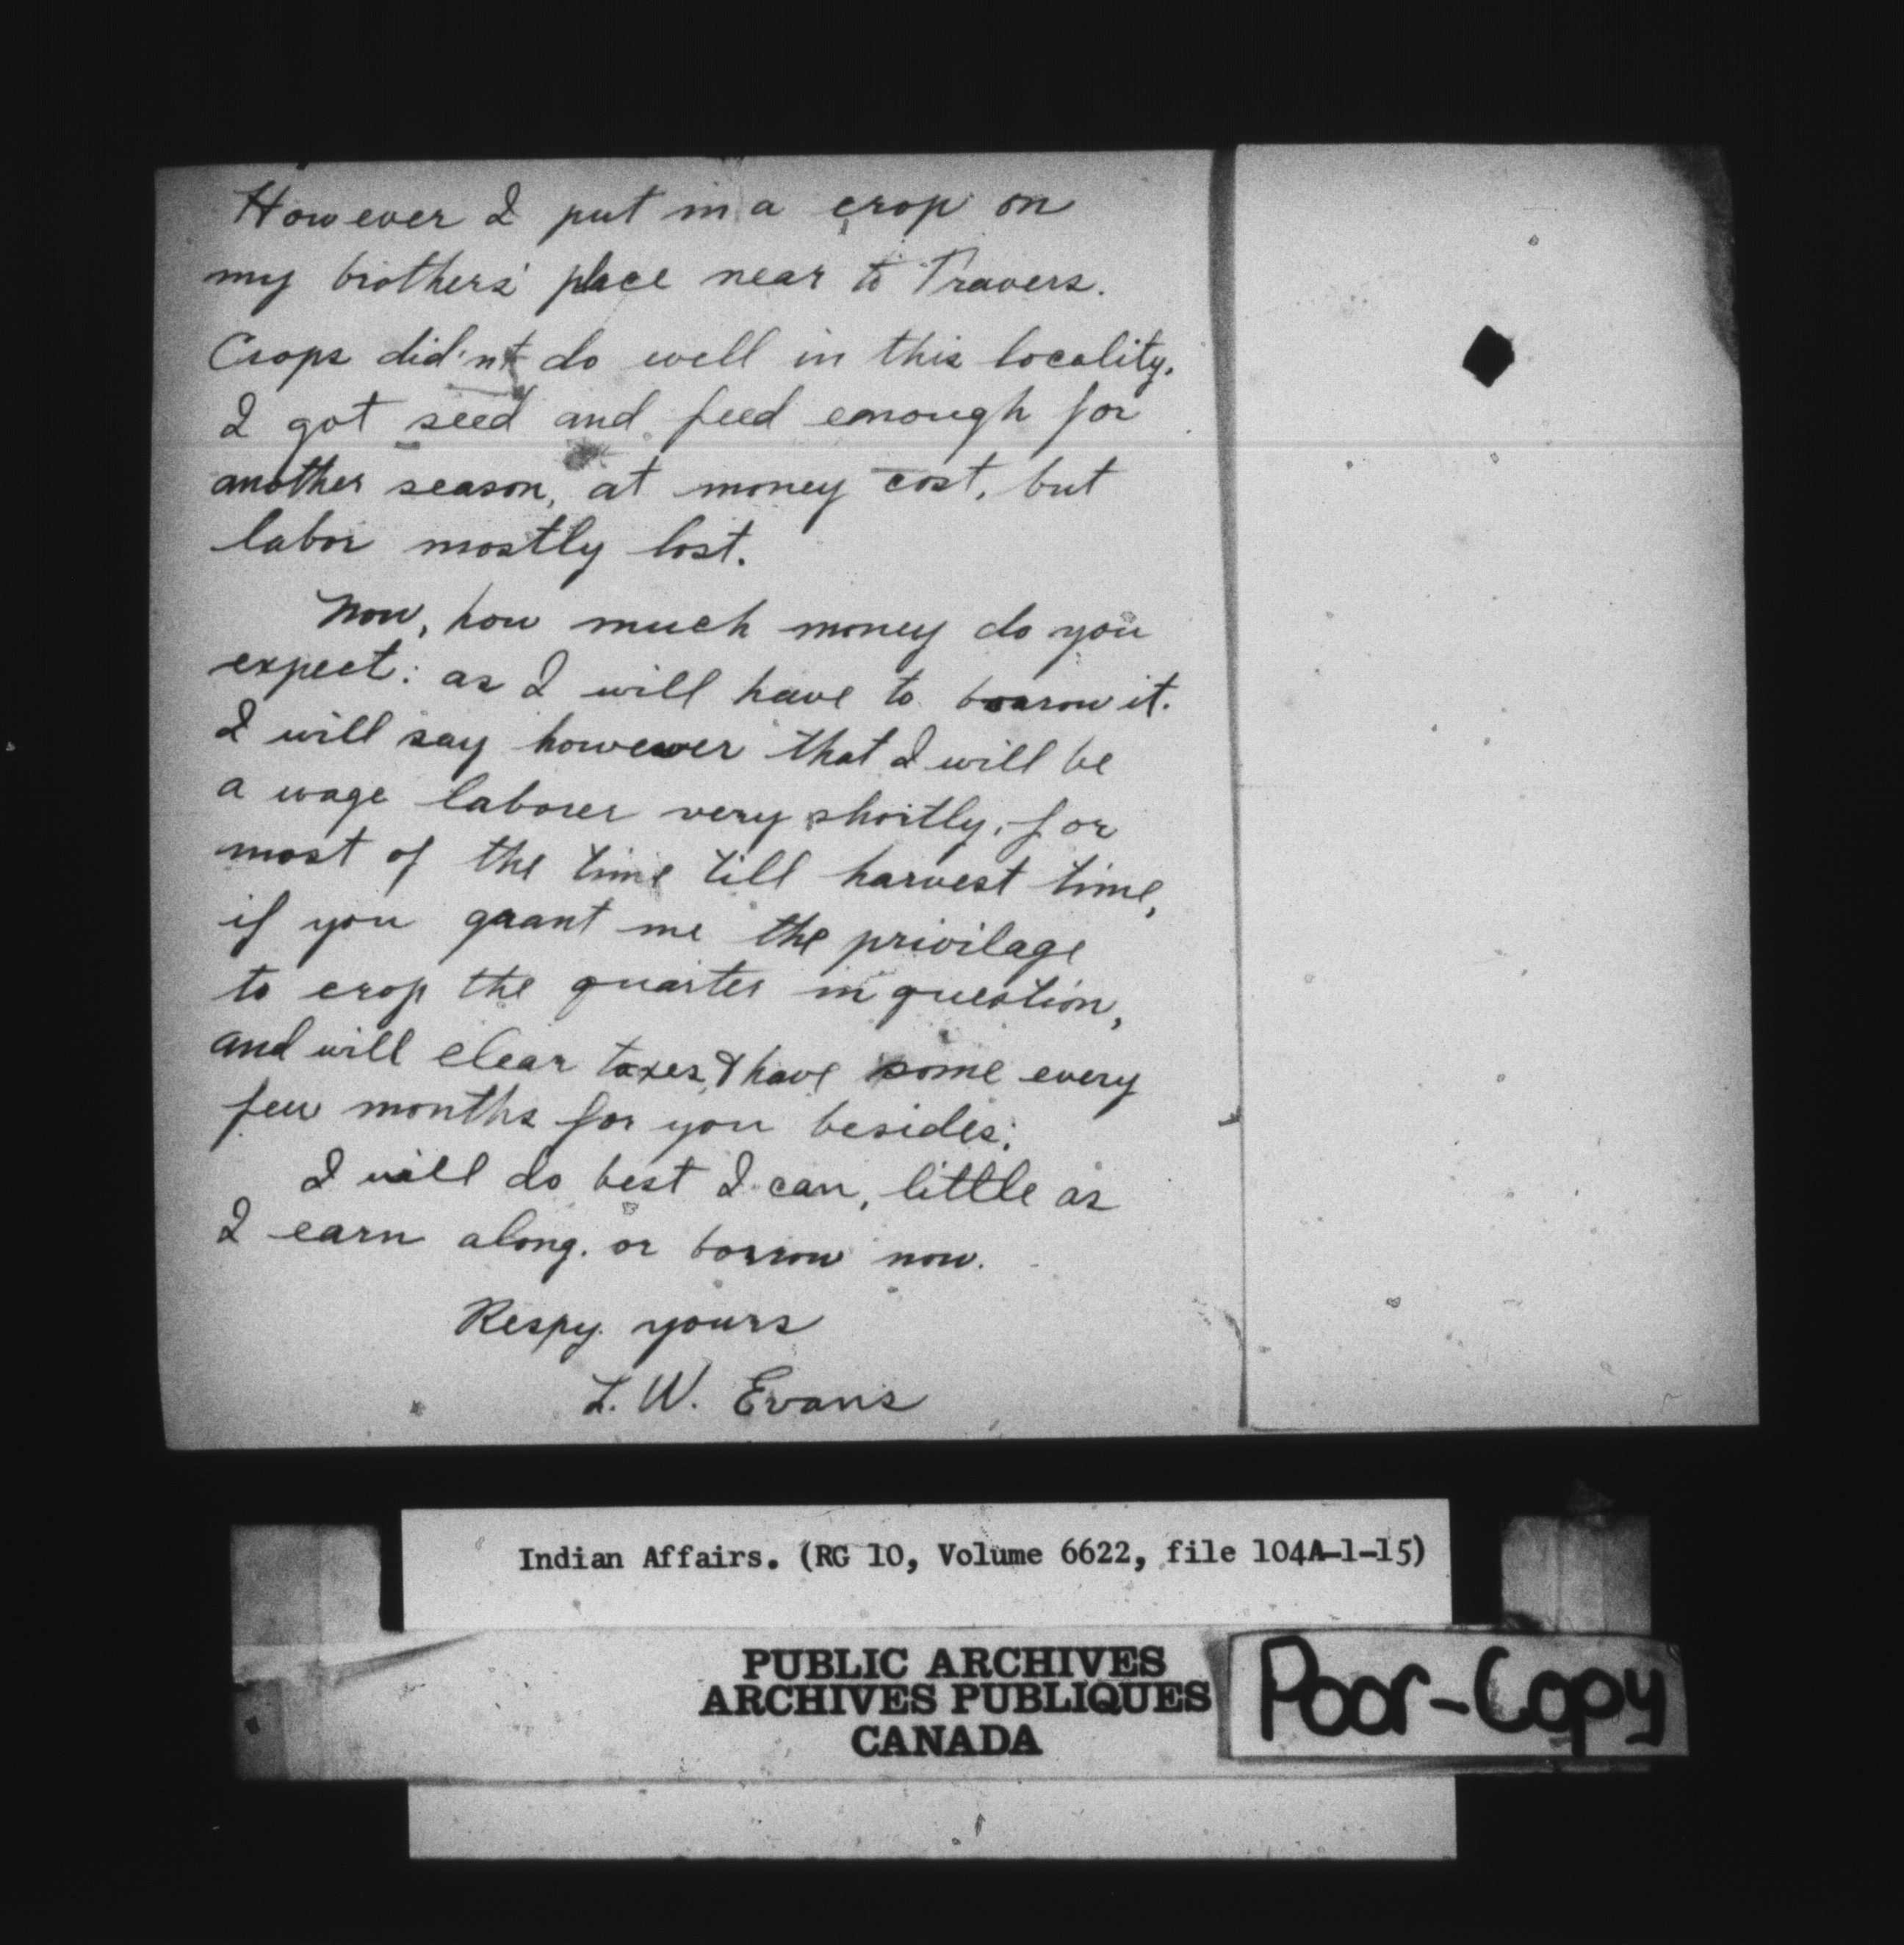 However I put in a crop on
my brothers' place near to Travers.
Crops did'nt do well in this locality.
I got seed and feed enough for
another season, at money cost, but
labor mostly lost.
Now, how much money do you
expect: as I will have to borrow it.
I will say however that I will be
a wage laborer very shortly, for
most of the time till harvest time,
if you grant me the privilage
to crop the quarter in question,
and will clear taxes, & have some every
few months for you besides;
I will do best I can, little as
I earn along. or borrow now.
Respy. yours
L. W. Evans
Indian Affairs. (RG 10, Volume 6622, file 104A-1-15)
PUBLIC ARCHIVES
ARCHIVES PUBLIQUES
CANADA
Poor-Copy